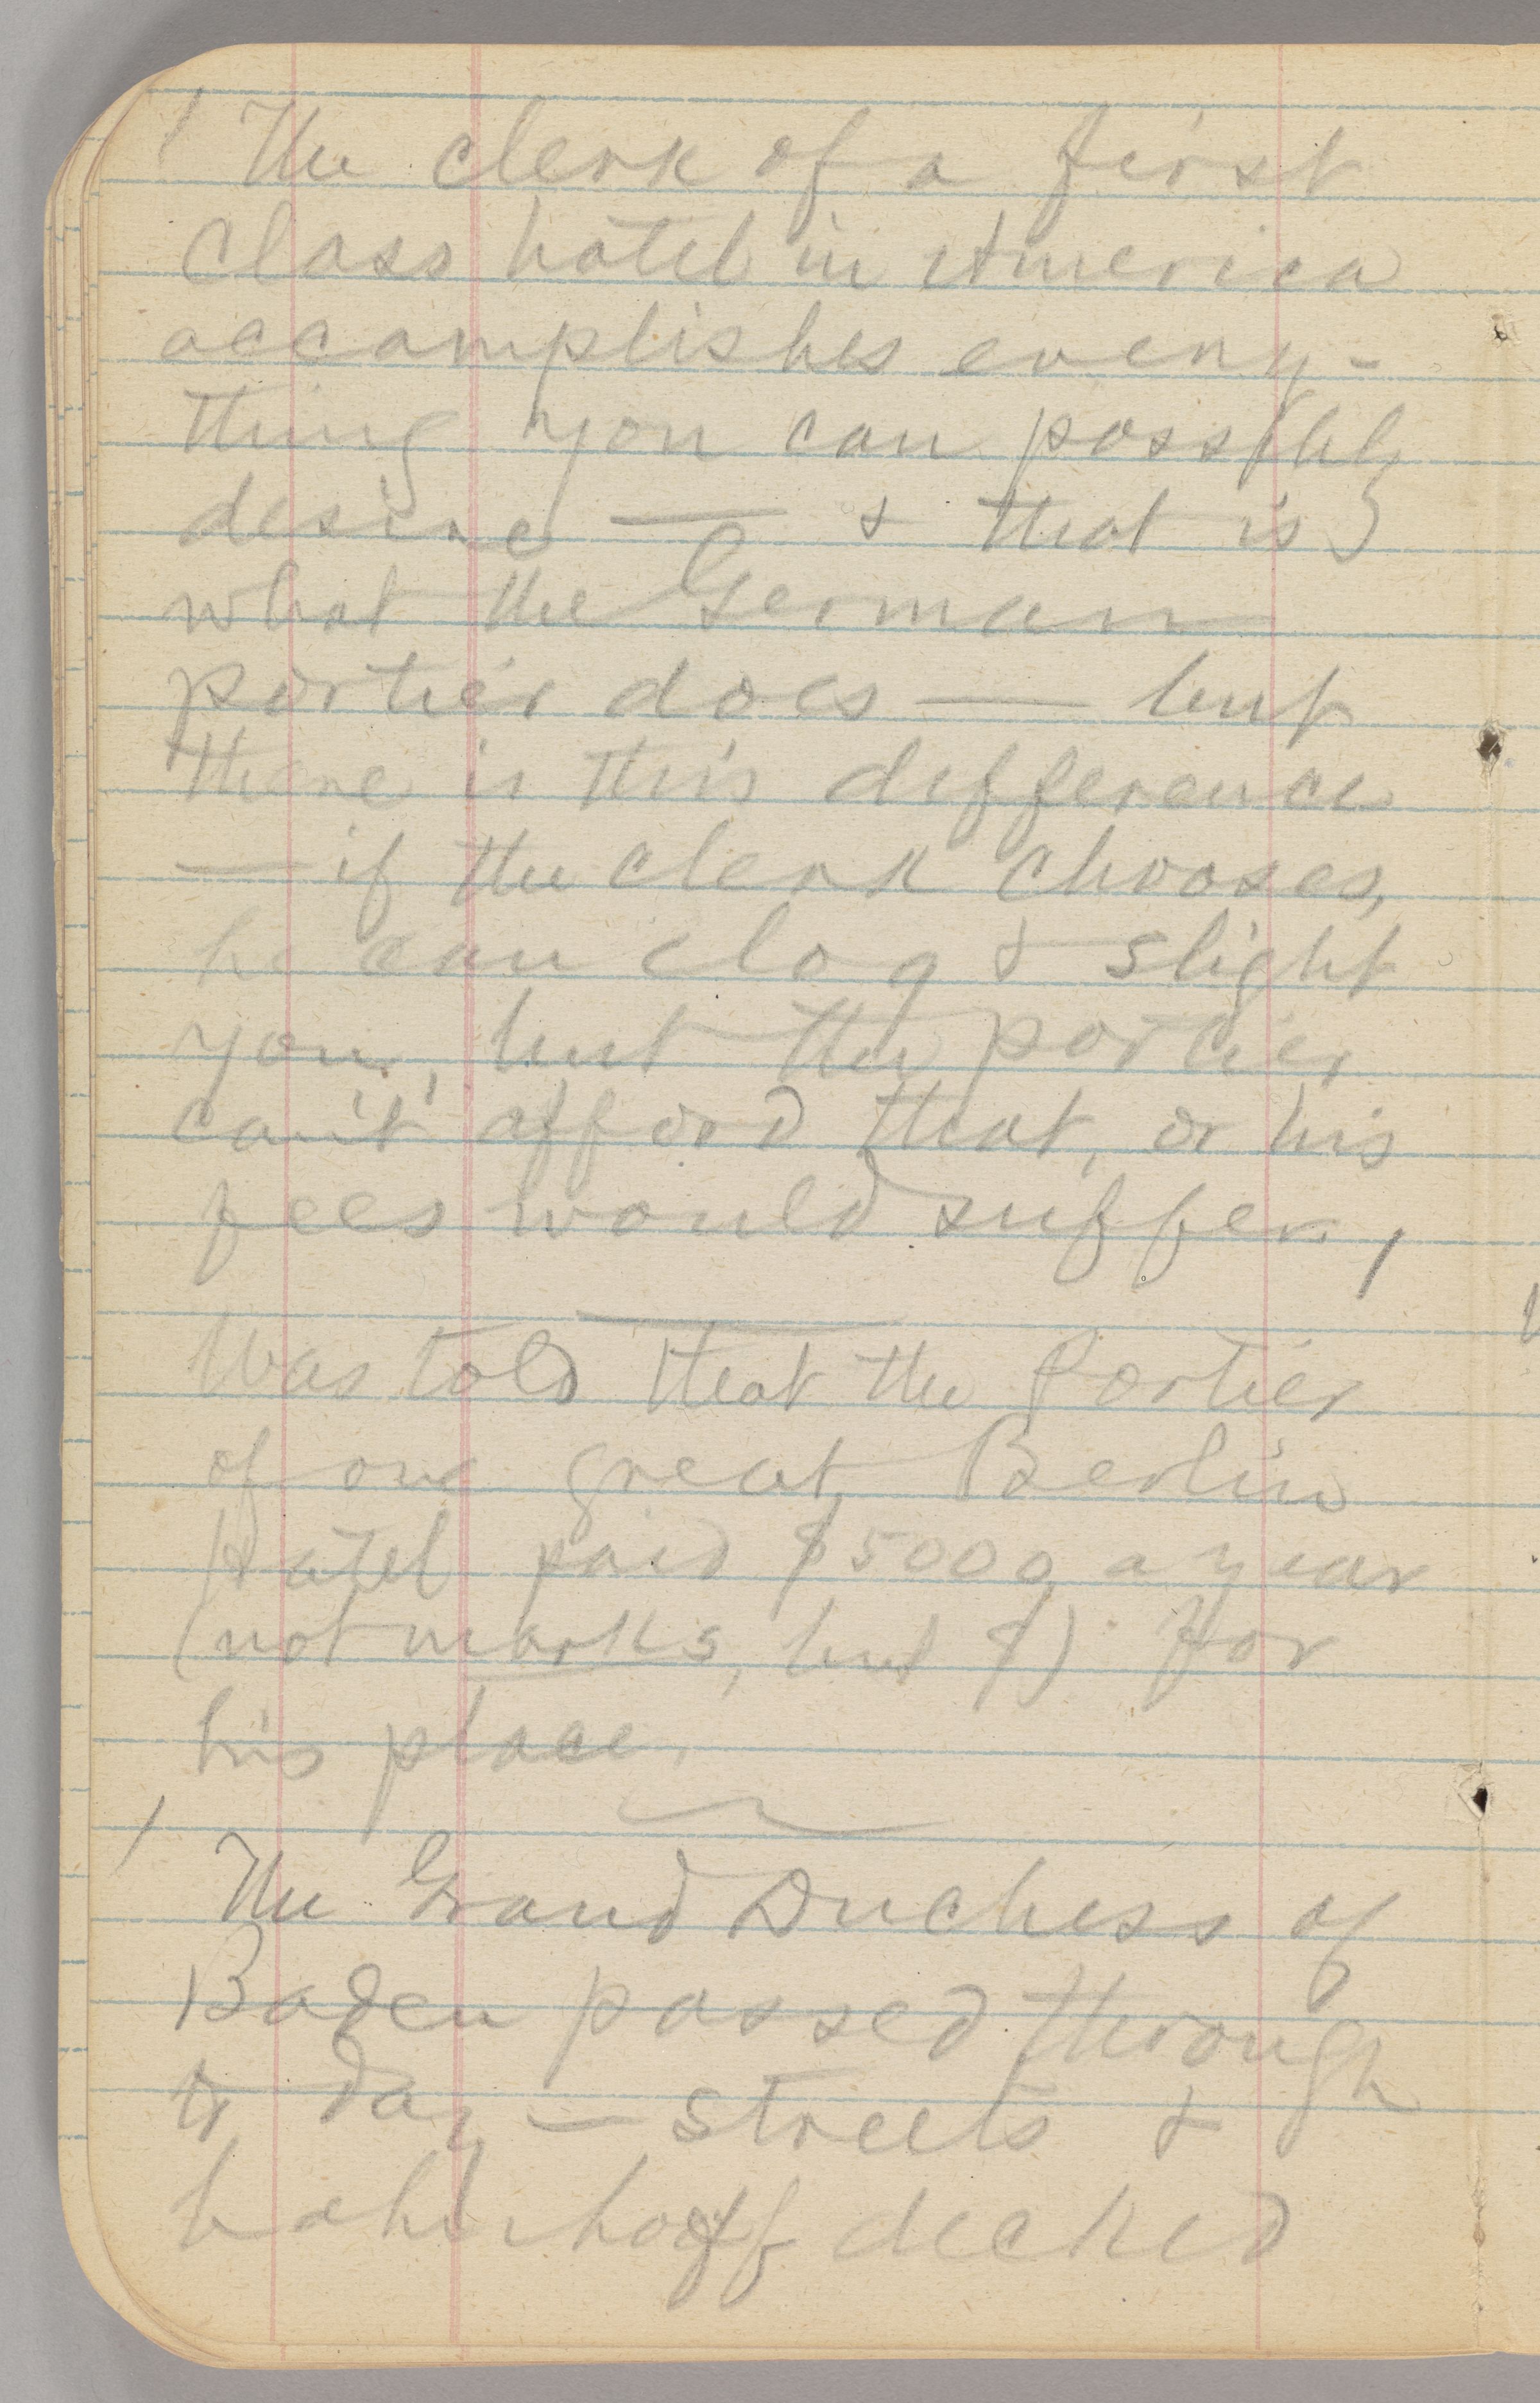 The clerk of a first
class hotel in America
accomplishes every-
thing you can possibly
desire — & that is
what the German
portier does — but
there is this difference
— if the clerk chooses,
he can clog & slight
you, but the portier
can't afford that, or his
fees would suffer,
Was told that the Portier
of one great Berlin
Hotel paid $5000 a year
(not marks, but $) for
his place.
The Grand Duchess of
Baden passed through
to day — streets &
bahnhoff decked